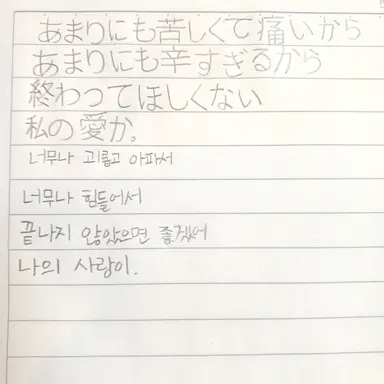 あまりにも苦しくて痛いから
あまりにも辛すぎるから
終わってほしくない
私の愛が。
너무나 괴롭고 아파서
너무나 힘들어서
끝나지 않았으면 좋겠어
나의 사랑이.